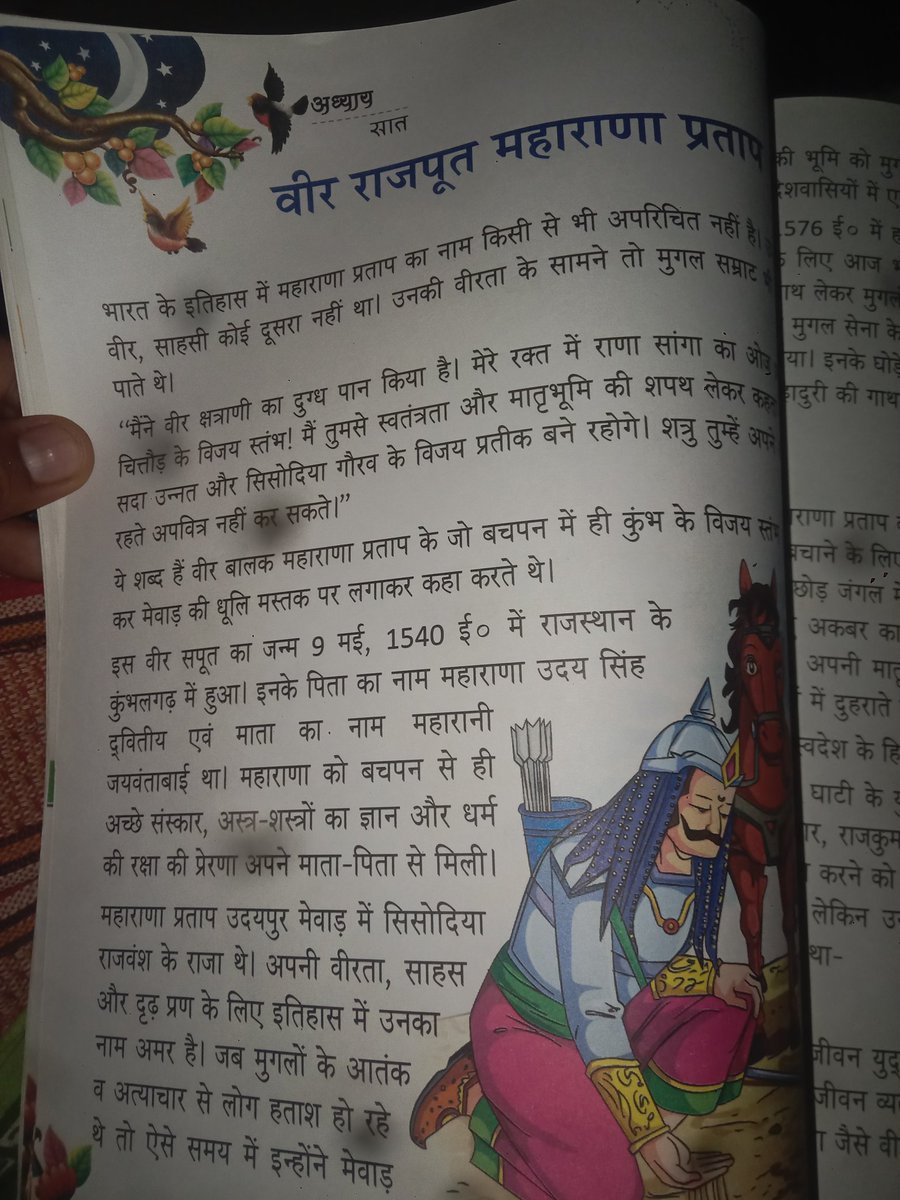 अध्याय
सात
वीर राजपूत महाराणा प्रताप
भारत के इतिहास में महाराणा प्रताप का नाम किसी से भी अपरिचित नहीं है।
वीर, साहसी कोई दूसरा नहीं था। उनकी वीरता के सामने तो मुगल सम्राट
पाते थे।
“मैंने वीर क्षत्राणी का दुग्ध पान किया है। मेरे रक्त में राणा सांगा का ओज
चित्तौड़ के विजय स्तंभ! मैं तुमसे स्वतंत्रता और मातृभूमि की शपथ लेकर
सदा उन्नत और सिसोदिया गौरव के विजय प्रतीक बने रहोगे। शत्रु तुम्हें अपने
रहते अपवित्र नहीं कर सकते।”
ये शब्द हैं वीर बालक महाराणा प्रताप के जो बचपन में ही कुंभ के विजय स्तंभ
कर मेवाड़ की धूलि मस्तक पर लगाकर कहा करते थे।
इस वीर सपूत का जन्म 9 मई, 1540 ई० में राजस्थान के
कुंभलगढ़ में हुआ। इनके पिता का नाम महाराणा उदय सिंह
द्वितीय एवं माता का नाम महारानी
जयवंताबाई था। महाराणा को बचपन से ही
अच्छे संस्कार, अस्त्र-शस्त्रों का ज्ञान और धर्म
की रक्षा की प्रेरणा अपने माता-पिता से मिली।
महाराणा प्रताप उदयपुर मेवाड़ में सिसोदिया
राजवंश के राजा थे। अपनी वीरता, साहस
और दृढ़ प्रण के लिए इतिहास में उनका
नाम अमर है। जब मुगलों के आतंक
व अत्याचार से लोग हताश हो रहे
थे तो ऐसे समय में इन्होंने मेवाड़
की भूमि को
में ए
576 ई० में
लिए आज
लेकर
मुगल सेना के
इनके
की
राणा प्रताप
बचाने के लिए
छोड़ जंगल में
अकबर का
अपनी
में दुहराते
स्वदेश के
घाटी के
करने को
लेकिन
था-
जीवन
जीवन
जैसे